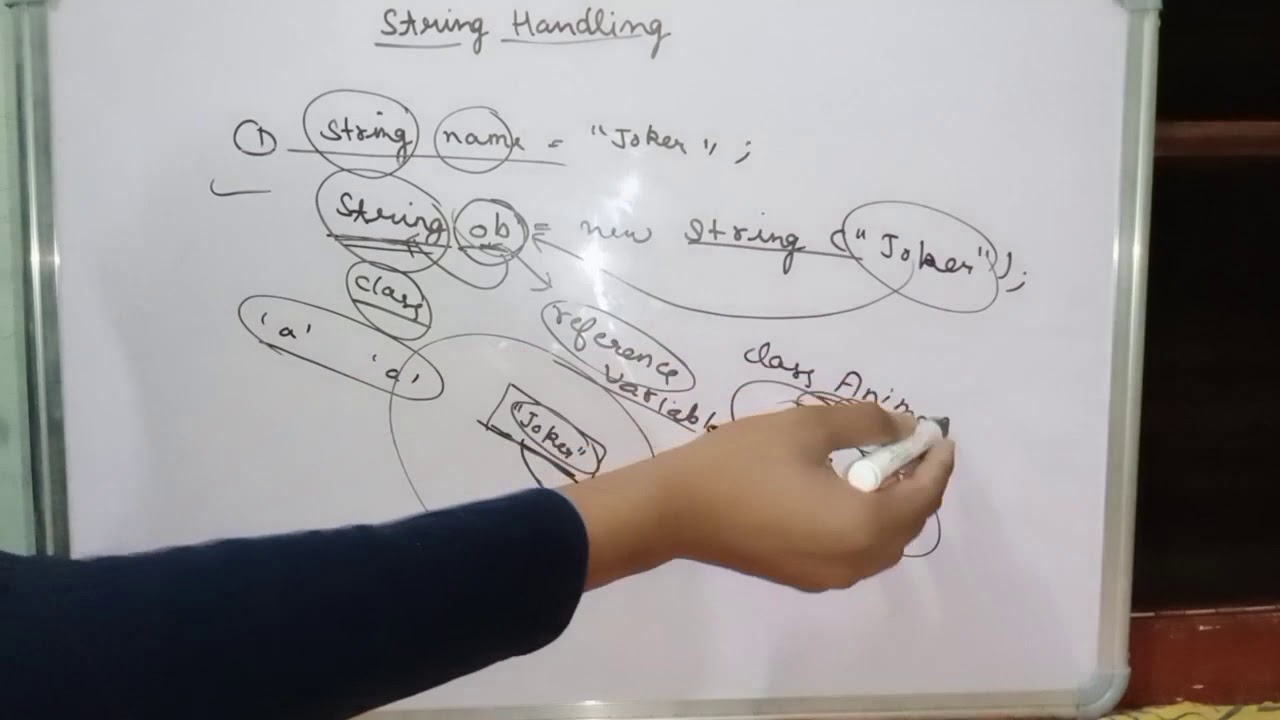 String Handling
① String name = "Joker";
String ob = new String ("Joker");
class
reference
variable
'a'
'a'
"Joker"
class